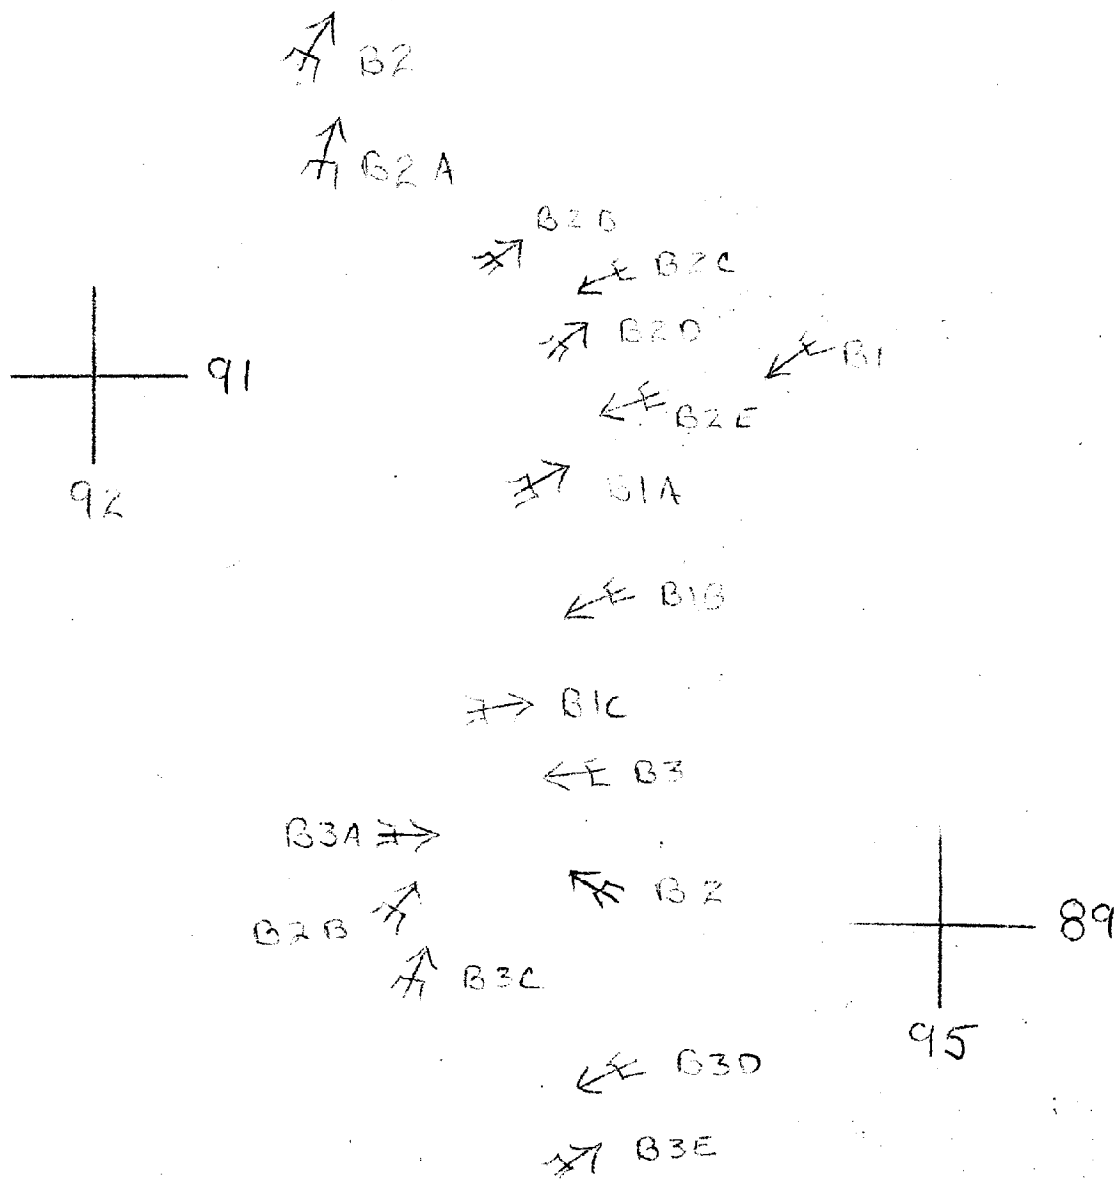 B2
B2A
B2B
B2C
B2D
B1
91
B2E
92
B1A
B1B
B1C
B3
B3A
B2
B2B
89
B3C
95
B3D
B3E